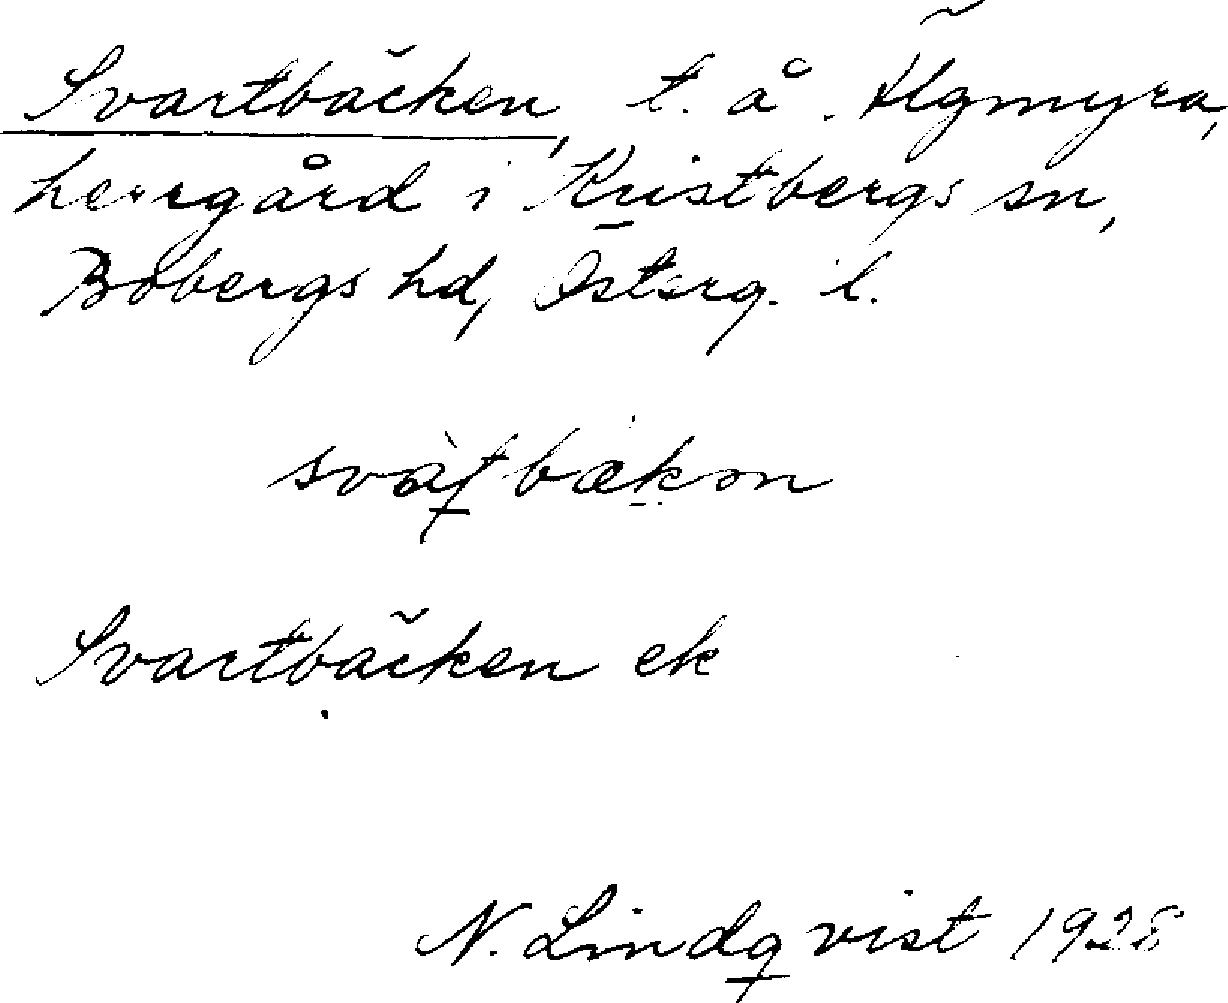 Svartbäcken, t. å. Älgmyra,
herrgård i Kristbergs sn,
Bobergs hd, Österg. l.
Svartbäcken ek
N. Lindqvist 1928